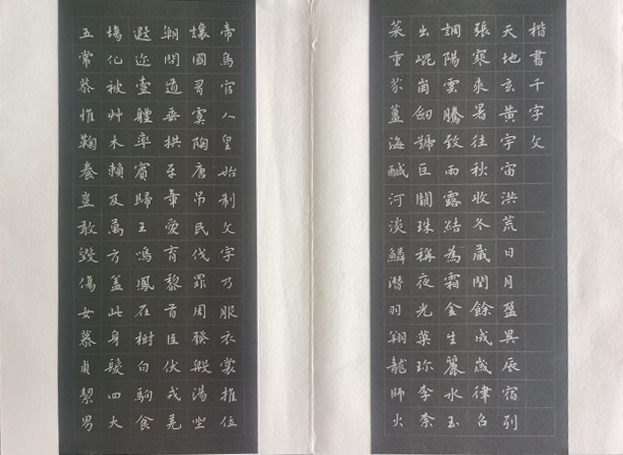 楷書千字文
天地玄黃宇宙洪荒日月盈昃辰宿列
張寒來暑往秋收冬蔵閏餘成歲律呂
調陽雲騰致雨露結為霜金生麗水玉
出崐崗劒號巨闕珠稱夜光菓珎李柰
菜重芥薑海鹹河淡鱗潛羽翔龍師火
帝鳥官人皇始制文字乃服衣裳推位
讓國有虞陶唐吊民伐罪周發殷湯坐
朝問道垂拱平章愛育黎首臣伏戎羌
遐迩壹軆率賓歸王鳴鳳在樹白駒食
塲化被艸木賴及萬方盖此身髮四大
五常恭惟鞠養豈敢毀傷女慕貞絜男